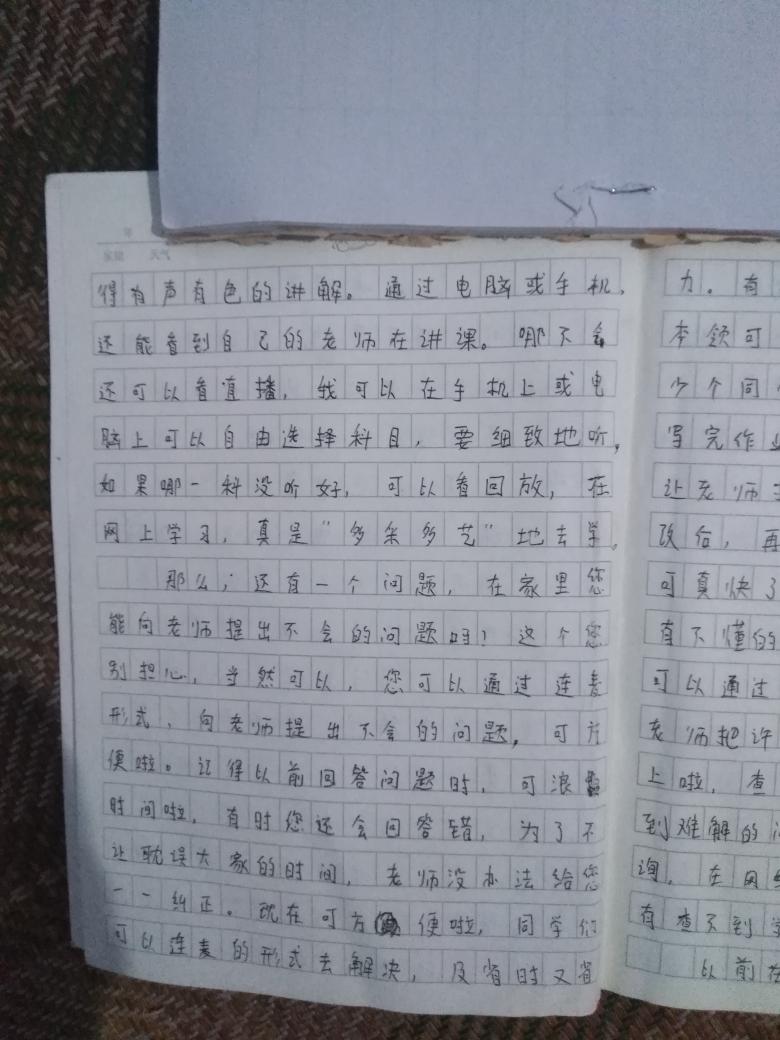 年
星期 天气
得有声有色的讲解。通过电脑或手机，
还能看到自己的老师在讲课。哪不会
还可以看直播，我可以在手机上或电
脑上可以自由选择科目，要细致地听，
如果哪一科没听好，可以看回放，在
网上学习，真是“多采多艺”地去学。
那么，还有一个问题，在家里您
能向老师提出不会的问题吗！这个您
别担心，当然可以，您可以通过连麦
形式，向老师提出不会的问题，可方
便啦。记得以前回答问题时，可浪
时间啦，有时您还会回答错，为了不
让耽误大家的时间，老师没办法给您
一一纠正。现在可方便啦，同学们
可以连麦的形式去解决，及省时又省
力。有
本领可
少个同
写完作业
让老师
改后，再
可真快了
有不懂的
可以通过
老师把许
上啦，查
到难解的
询，在网
有查不到
以前在